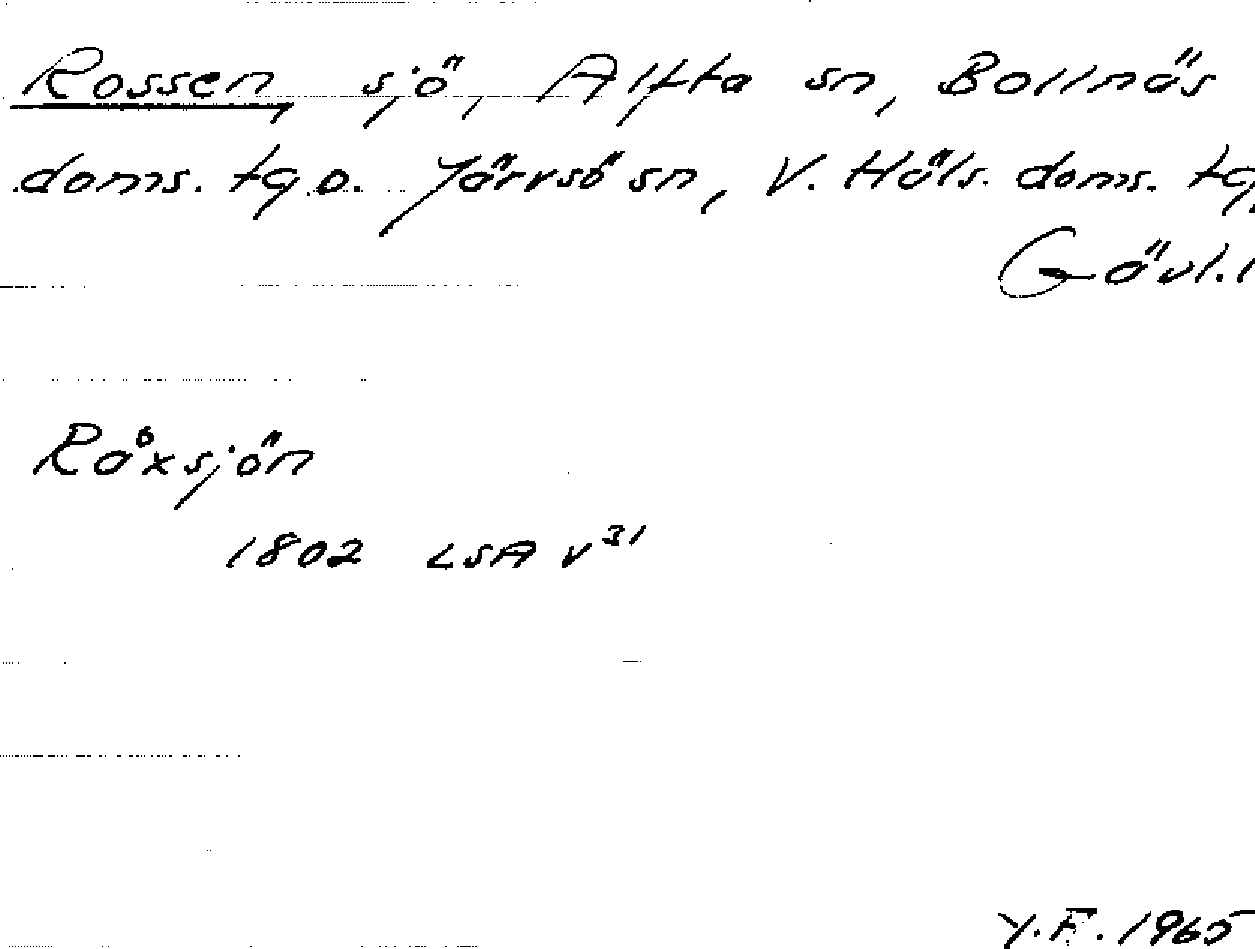 Rossen, sjö, Alfta sn, Bollnäs
doms. tg o. Järvsö sn, V. Häls. doms. tg,
Gävl. l
Råxsjön
1802 LSA V31
Y.F. 1965